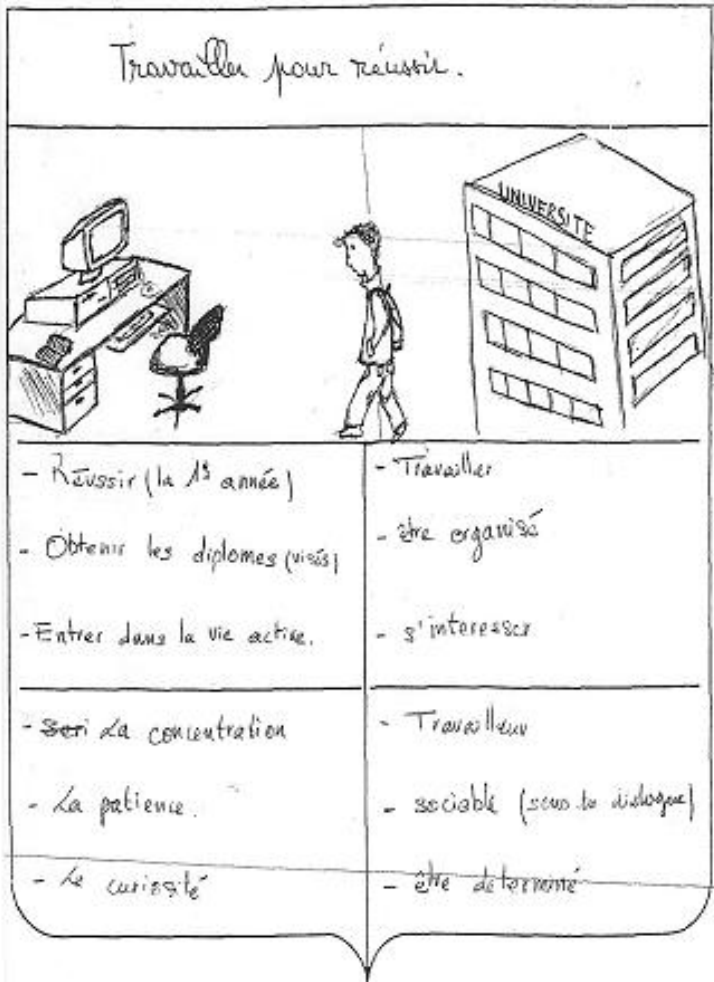 Travailler pour réussir.
UNIVERSITE
- Réussir (la 1è année)
- Obtenir les diplomes (visés)
- Entrer dans la vie active.
- Travailler
- être organisé
- s'interesser
- La concentration
- La patience.
- La curiosité
- Travailleur
- sociable (sens du dialogue)
- être déterminé